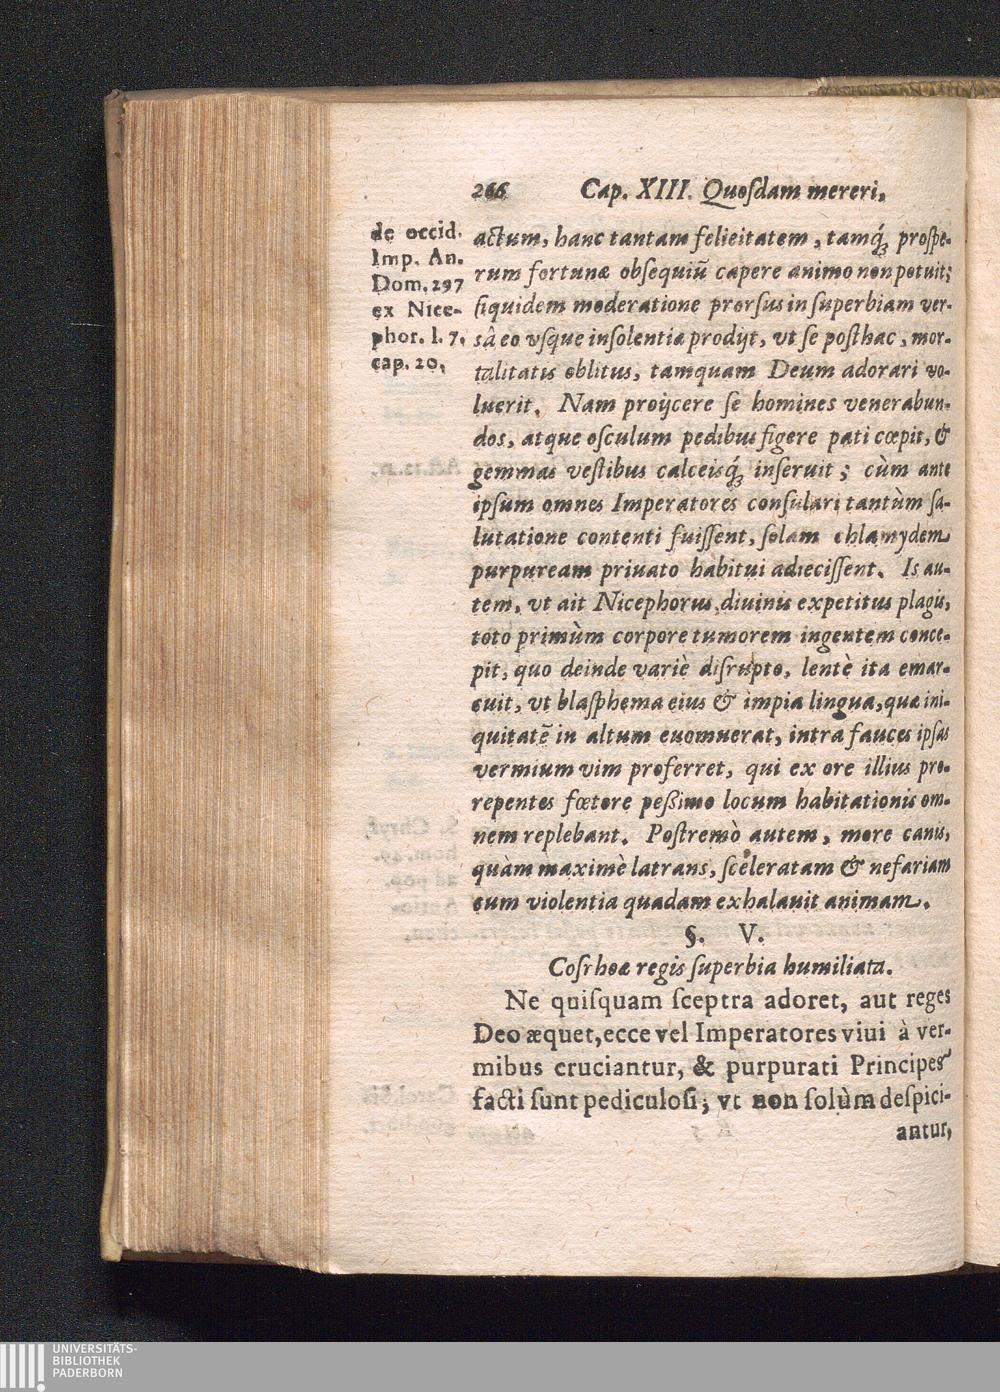 266 Cap. XIII. Quoſdam mereri.
de occid.
Imp. An.
Dom. 297
ex Nice-
phor. l. 7.
cap. 20.
actum, hanc tantam felicitatem, tamq́; proſpe-
rum fortunæ obſequiũ capere animo non potuit;
ſiquidem moderatione prorſus in ſuperbiam ver-
sâ eo vſque inſolentia prodijt, vt ſe poſthac, mor-
talitatis oblitus, tamquam Deum adorari vo-
luerit. Nam proijcere ſe homines venerabun-
dos, atque oſculum pedibus figere pati cœpit, &
gemmas veſtibus calceisq́; inſeruit; cùm ante
ipſum omnes Imperatores conſulari tantùm ſa-
lutatione contenti fuiſſent, ſolam chlamydem
purpuream priuato habitui adieciſſent. Is au-
tem, vt ait Nicephorus, diuinis expetitus plagis,
toto primùm corpore tumorem ingentem conce-
pit, quo deinde variè diſrupto, lentè ita emar-
cuit, vt blaſphema eius & impia lingua, quæ ini-
quitatẽ in altum euomuerat, intra fauces ipſas
vermium vim proferret, qui ex ore illius pro-
repentes fœtore peßimo locum habitationis om-
nem replebant. Poſtremò autem, more canis,
quàm maximè latrans, ſceleratam & nefariam
cum violentia quadam exhalauit animam.
§. V.
Coſrhoæ regis ſuperbia humiliata.
Ne quiſquam ſceptra adoret, aut reges
Deo æquet, ecce vel Imperatores viui à ver-
mibus cruciantur, & purpurati Principes
facti ſunt pediculoſi; vt non ſolùm deſpici-
antur,
UNIVERSITÄTS-
BIBLIOTHEK
PADERBORN